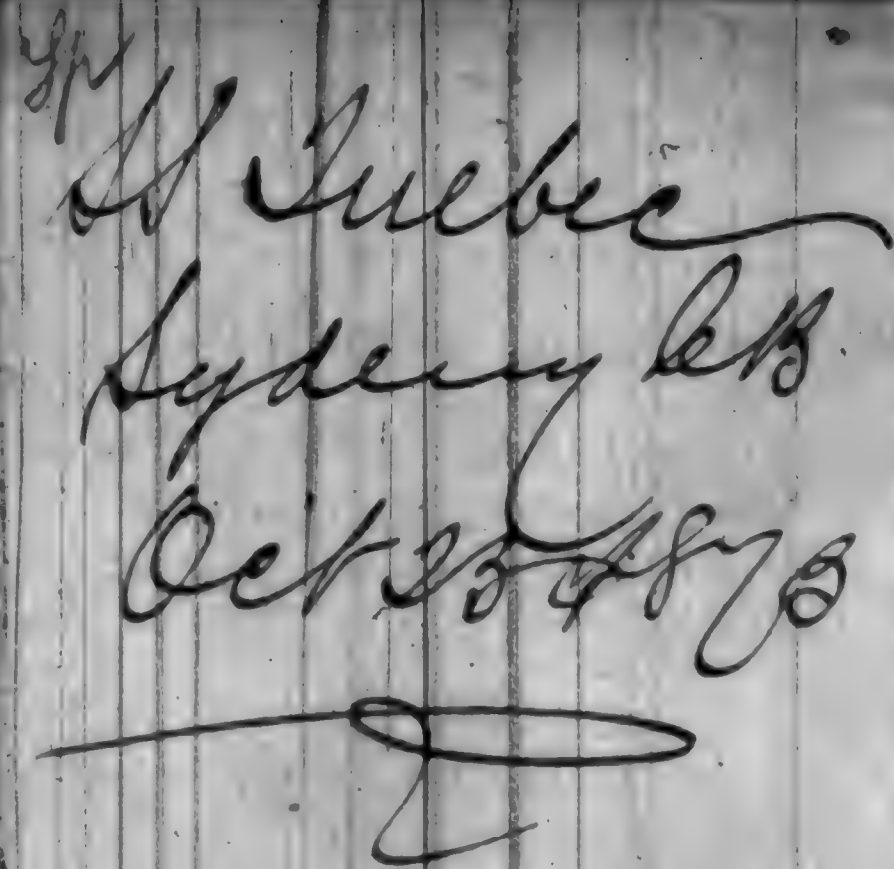 SS Quebec
Sydney CB
Oct 25th 1873